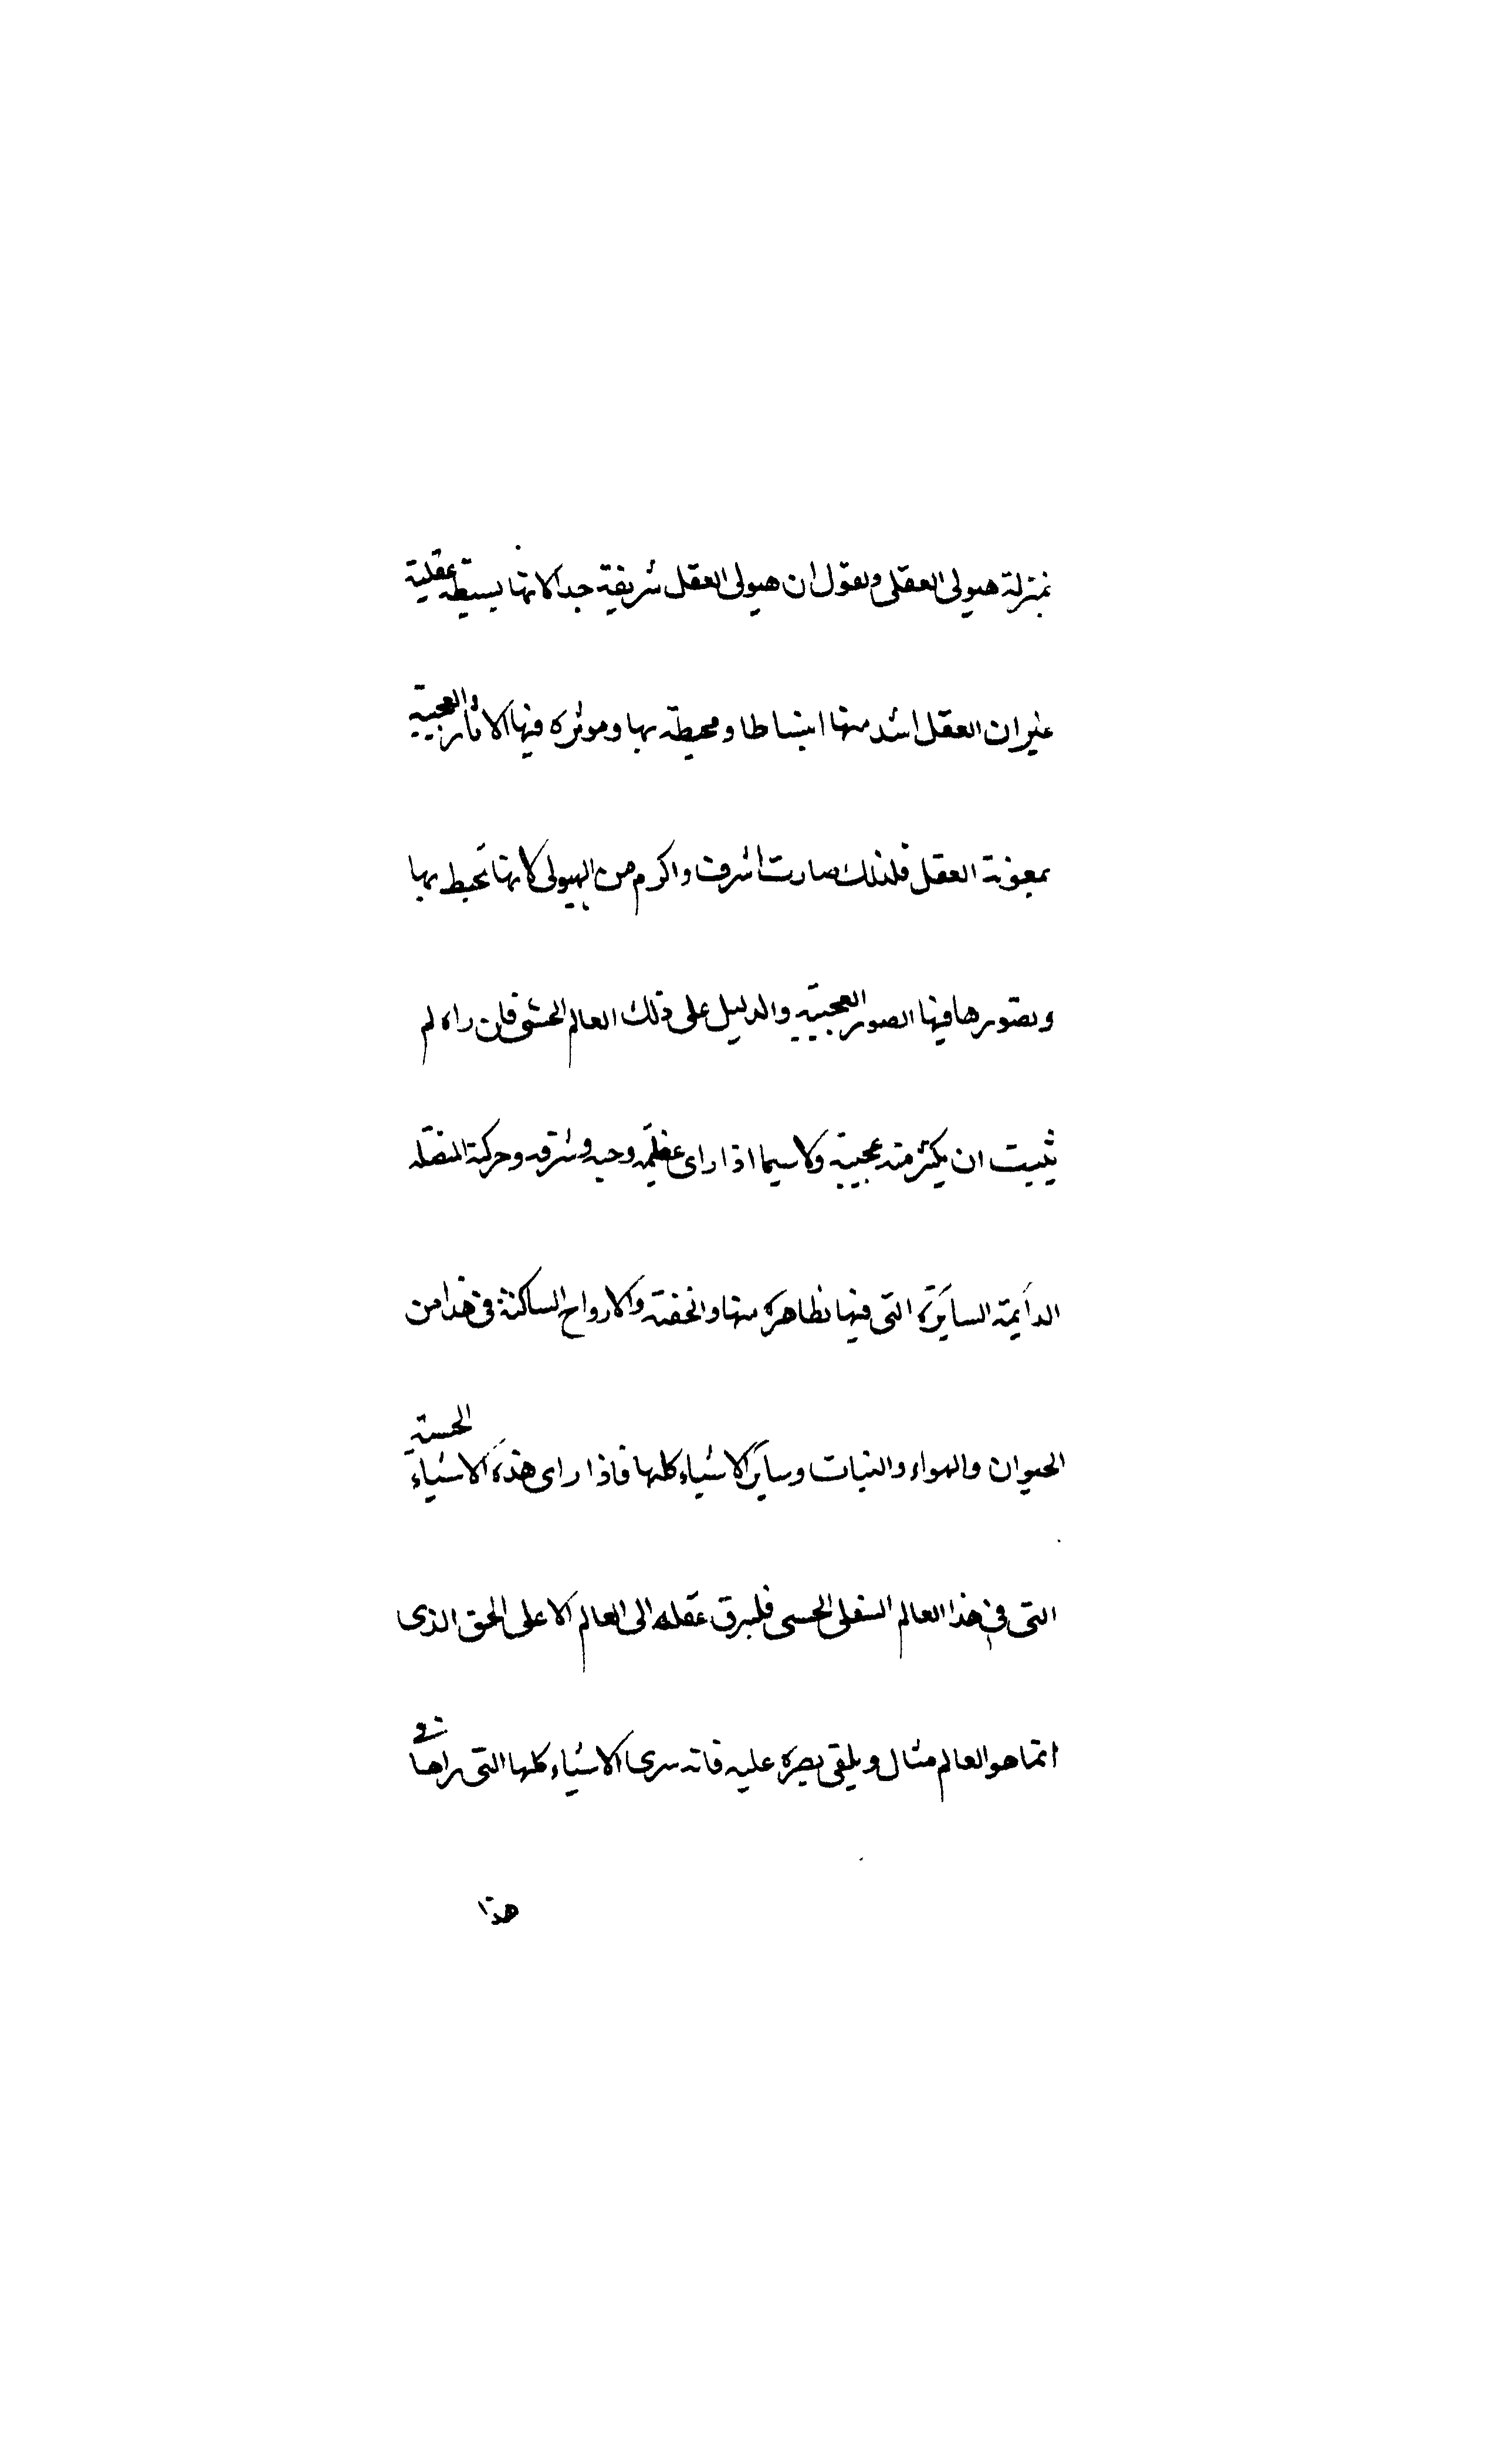 بمنزلة هيولى العقلى ونقول ان هيولى العقل شريفة جدا لانها بسيطة عقلية
غير ان العقل اشد منها انبساطا ومحيطة بها وموثره فيها الاثار العجيبة
بمعونة العقل فلذلك صارت اشرف واكرم من الهيولى لانها تحيط بها
وتصورها فيها الصور العجيبة والدليل على ذلك العالم الحسى فان راه لم
يثبت ان يكثر منه عجبية ولا سيما اذا راى عظمه وحبه وشرفه وحركة المتصله
الدايمة السايرة التى فيها نظاهرة منها والخفية والارواح الساكنة فى هذا من
الحيوان والهواء والنبات وساير الاشياء كلها فاذا راى هذه الاشياء الحسية
التى فى هذا العالم السفلى الحسى فليرق عقله الى العالم الاعلى الحق الذى
انما هو العالم مثال ويلقى بصره عليه فانه سرى الاشياء كلها التى راها فى
هذا